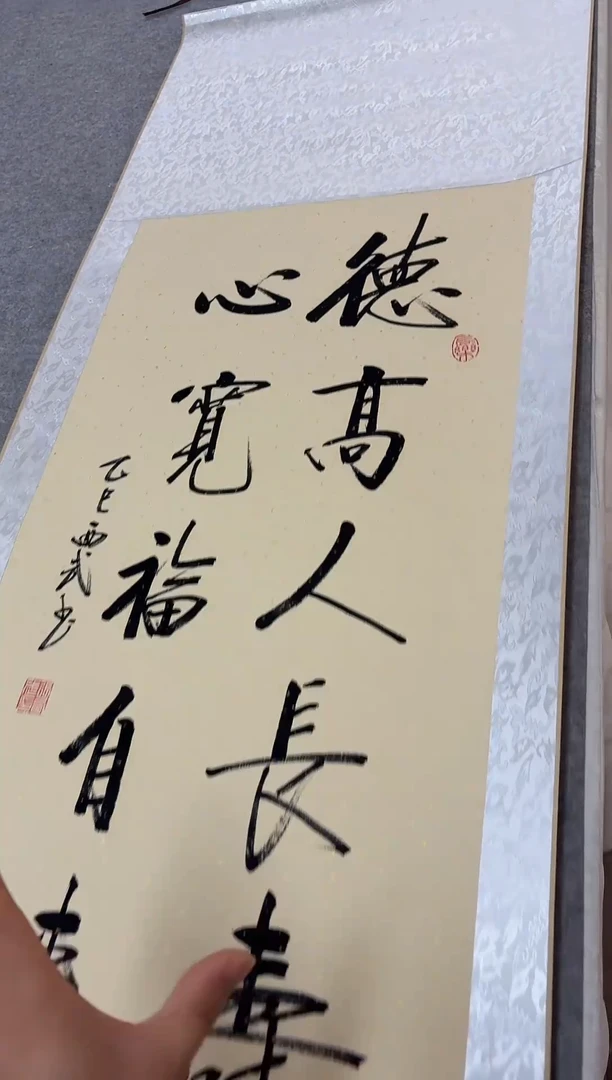 德高人長壽
心寬福自
乙巳西武书